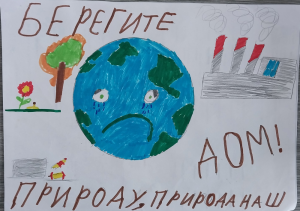 БЕРЕГИТЕ
ДОМ!
ПРИРОДУ, ПРИРОДА НАШ